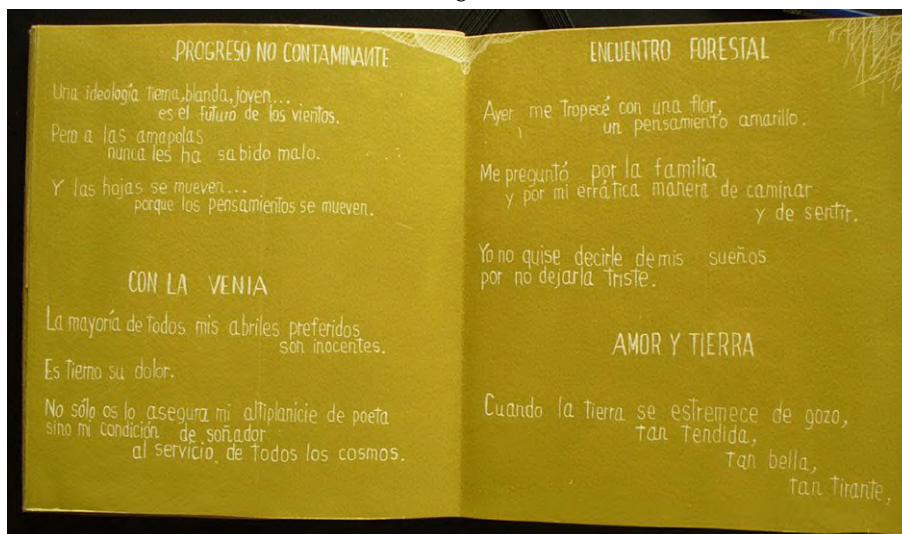 PROGRESO NO CONTAMINANTE
Una ideología tierna, blanda, joven...
es el futuro de los vientos.
Pero a las amapolas
nunca les ha sabido malo.
Y las hojas se mueven...
porque los pensamientos se mueven.
CON LA VENIA
La mayoría de todos mis abriles preferidos
son inocentes.
Es tierno su dolor.
No sólo os lo asegura mi altiplanicie de poeta
sino mi condición de soñador
al servicio de todos los cosmos.
ENCUENTRO FORESTAL
Ayer me tropecé con una flor,
un pensamiento amarillo.
Me preguntó por la familia
y por mi errática manera de caminar
y de sentir.
Yo no quise decirle de mis sueños
por no dejarla triste.
AMOR Y TIERRA
Cuando la tierra se estremece de gozo,
tan tendida,
tan bella,
tan tirante,